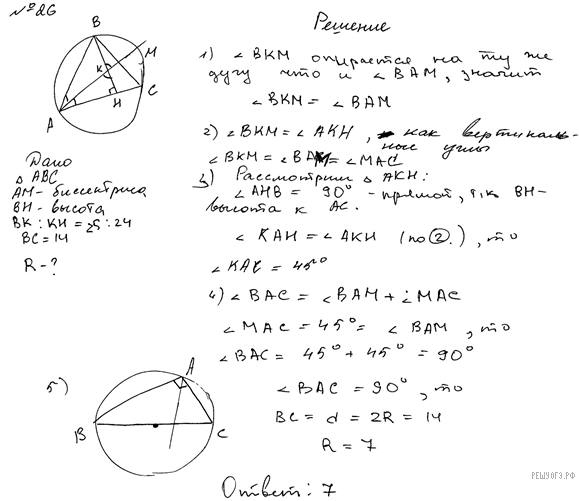 №26
Решение
B
M
K
H
C
A
Дано
△ ABC
AM - биссектриса
BH - высота
BK : KH = 25 : 24
BC = 14
R - ?
1) ∠BKM опирается на ту же
дугу что и ∠BAM, значит
∠BKM = ∠BAM
2) ∠BKM = ∠AKH, как вертикаль-
ные углы
∠BKM = ∠BAM = ∠MAC
3) Рассмотрим △ AKH:
∠AHB = 90° - прямой, т.к BH-
высота к AC.
∠KAH = ∠AKH (по 2.), то
∠KAC = 45°
4) ∠BAC = ∠BAM + ∠MAC
∠MAC = 45° = ∠BAM, то
∠BAC = 45° + 45° = 90°
5)
A
B
C
∠BAC = 90°, то
BC = d = 2R = 14
R = 7
Ответ: 7
РЕШУОГЭ.РФ